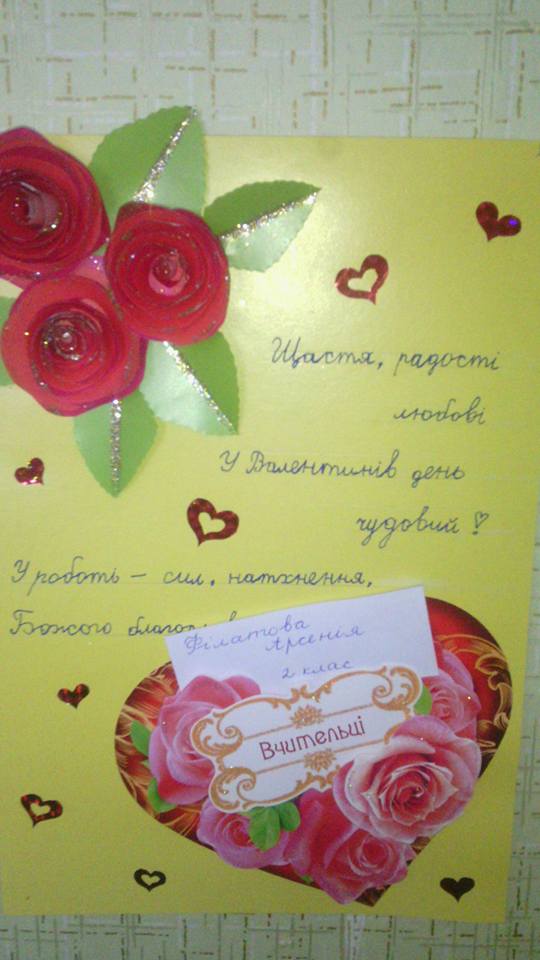 Щастя, радості
любові
У Валентинів день
чудовий!
У роботь - сил, натхнення,
Божого
Філатова
Арсенія
2 клас
Вчительці